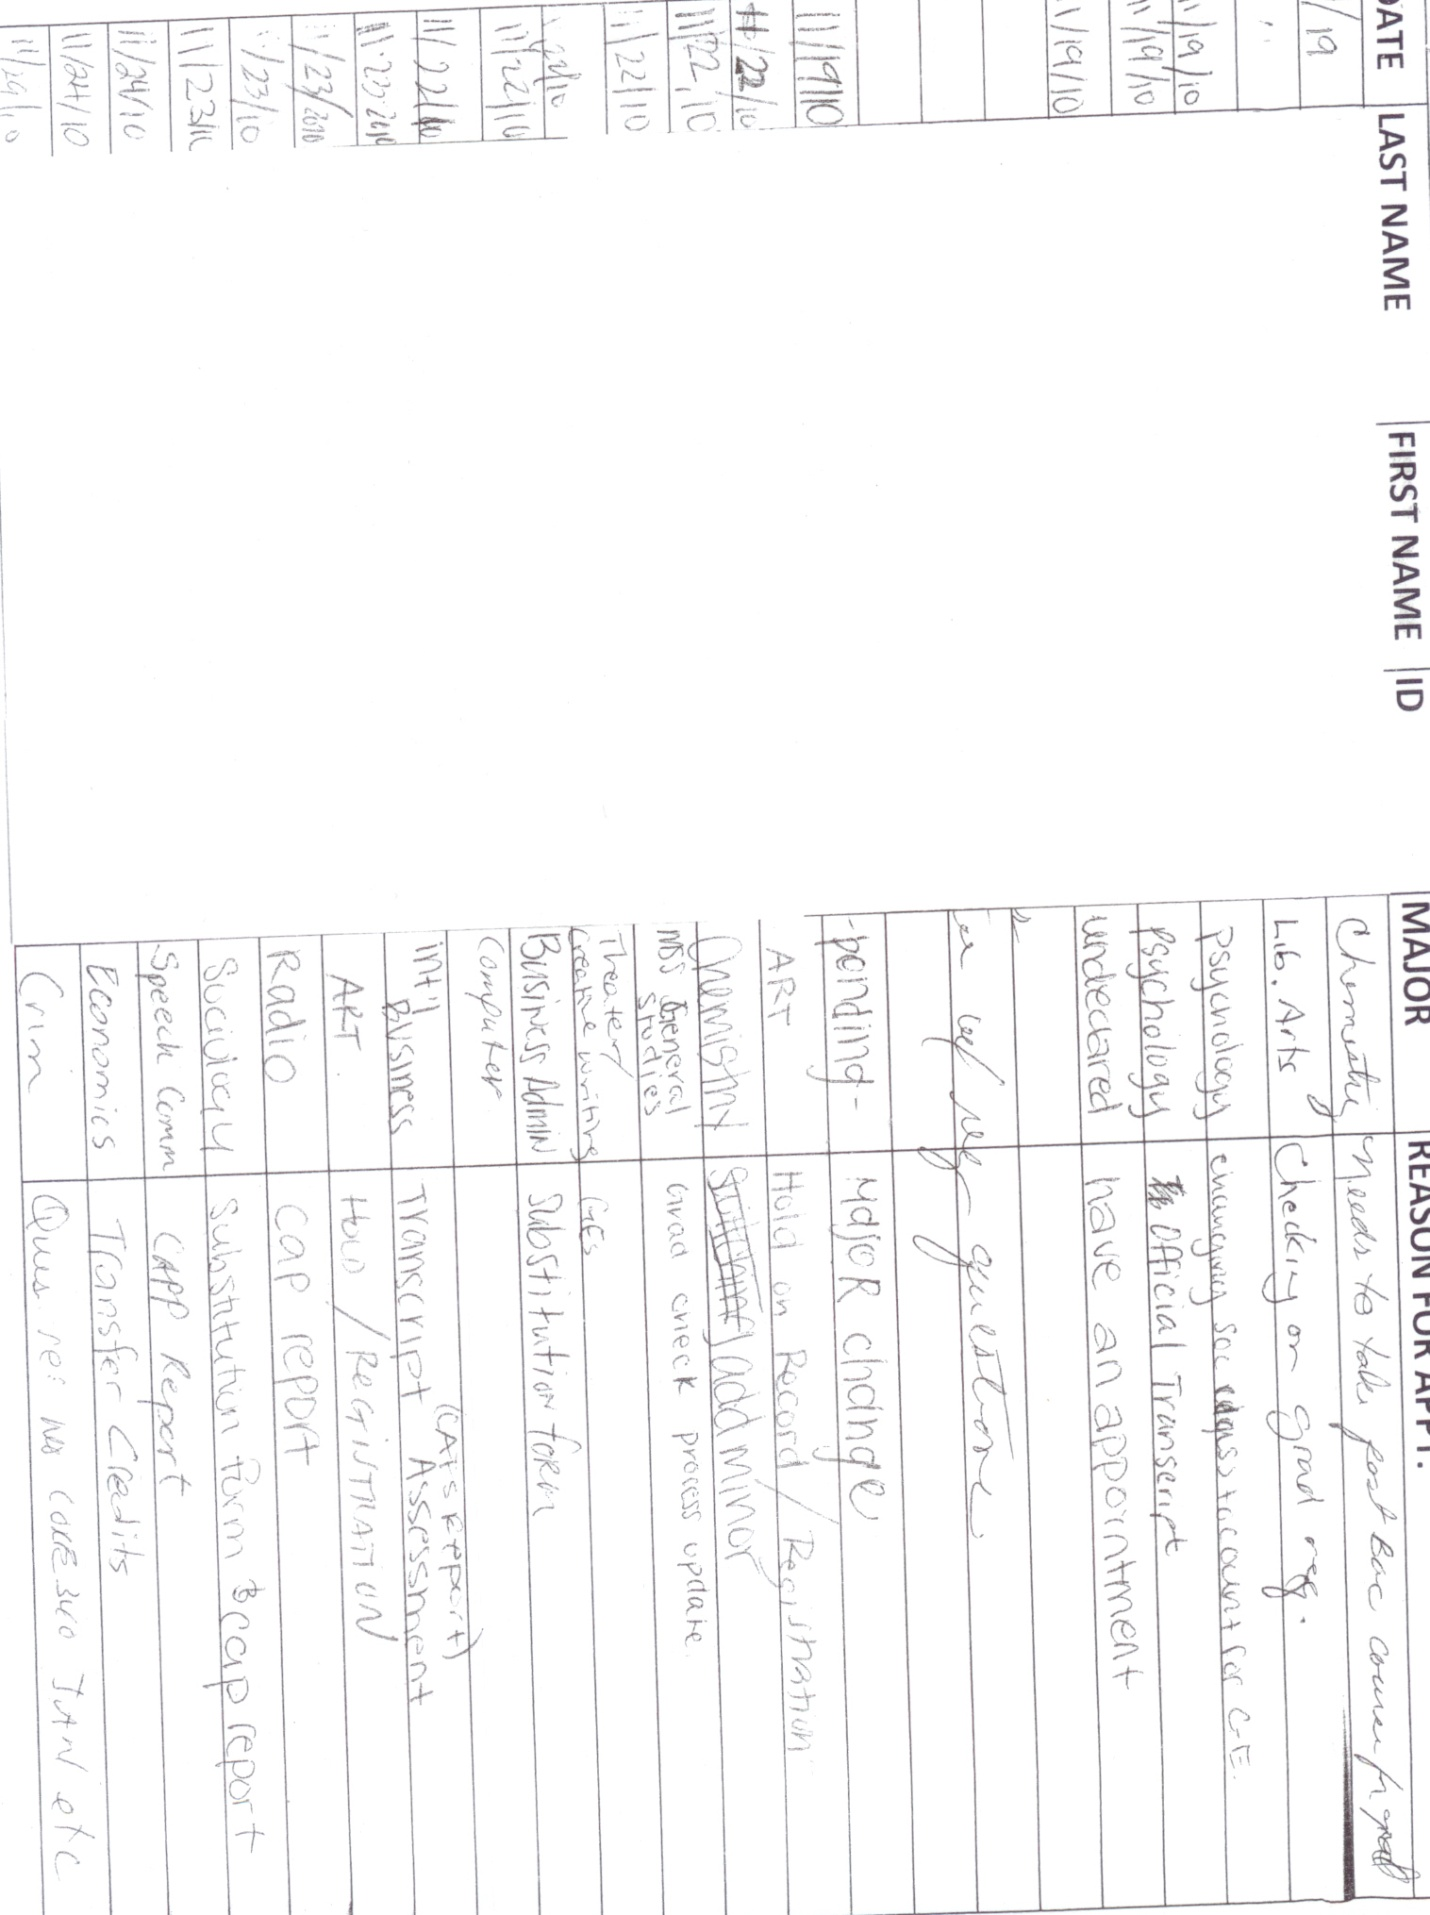 DATE LAST NAME FIRST NAME ID MAJOR REASON FOR APPT.
/19 Chemistry needs to take post bac course for grad
Lib. Arts Checking on grad reg.
11/19/10 Psychology changing soc to account for GE.
11/19/10 Psychology Official Transcript
11/19/10 undecared have an appointment
w/ reg question
-pending- MajoR change
11/19/10 ART Hold on Record / Registration
11/22/10 Chemistry add minor
11/22/10 MSS General Studies Grad check process update
11/22/10 Theater/ Creative writing GEs
11/22/10 Business Admin Substitution form
11/22/10 Computer
11/22/10 int'l Business Transcript Assessment (CATs Report)
11.23.2010 ART HOLD / REGISTRATION
11/23/2010 Radio Cap report
11/23/10 Sociology Substitution form & cap report
11/23/10 Speech Comm CAPP Report
11/24/10 Economics Transfer Credits
11/24/10 Crim Ques re: no CORE 340 etc
11/29/10